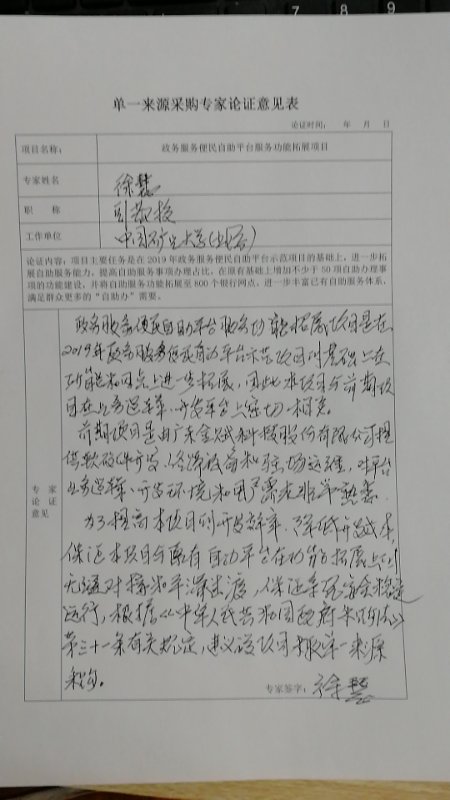 7 8 9
单一来源采购专家论证意见表
论证时间： 年 月 日
项目名称： 政务服务便民自助平台服务功能拓展项目
专家姓名 徐慧
职 称 副教授
工作单位 中国矿业大学(北京)
论证内容：项目主要任务是在 2019 年政务服务便民自助平台示范项目的基础上，进一步拓
展自助服务能力，提高自助服务事项办理占比，在原有基础上增加不少于 50 项自助办理事
项的功能建设，并将自助服务功能拓展至 800 个银行网点，进一步丰富已有自助服务体系，
满足群众更多的“自助办”需要。
政务服务便民自助平台服务功能拓展项目是在
2019年政务服务便民自助平台示范项目的基础上在
功能和网点上进一步拓展，因此本项目与前期项
目在业务逻辑、开发平台上密切相关。
前期项目是由广东金赋科技股份有限公司提
供软硬件开发、资源部署和驻场运维，对平台
业务逻辑、开发环境和用户需求非常熟悉。
专 家
论 证
意见
为了提高本项目的开发效率，降低开发成本，
保证本项目与原有自助平台在功能拓展上的
无缝对接和平滑过渡，保证系统安全稳定
运行，根据《中华人民共和国政府采购法》
第三十一条有关规定，建议该项目采取单一来源
采购。
专家签字： 徐慧